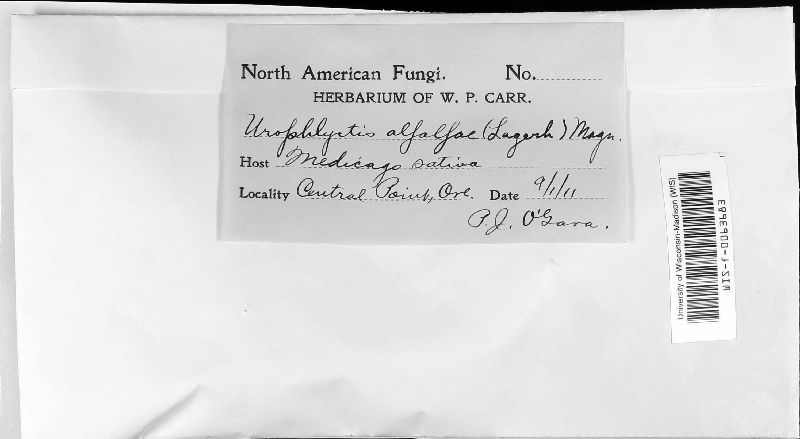 North American Fungi. No.
HERBARIUM OF W. P. CARR.
Urophlyctis alfalfae (Lagerh) Magn.
Host Medicago sativa
Locality Central Point, Ore. Date 9/1/11
P.J. O'Gara.
University of Wisconsin-Madison (WIS)
WIS-f-0093983